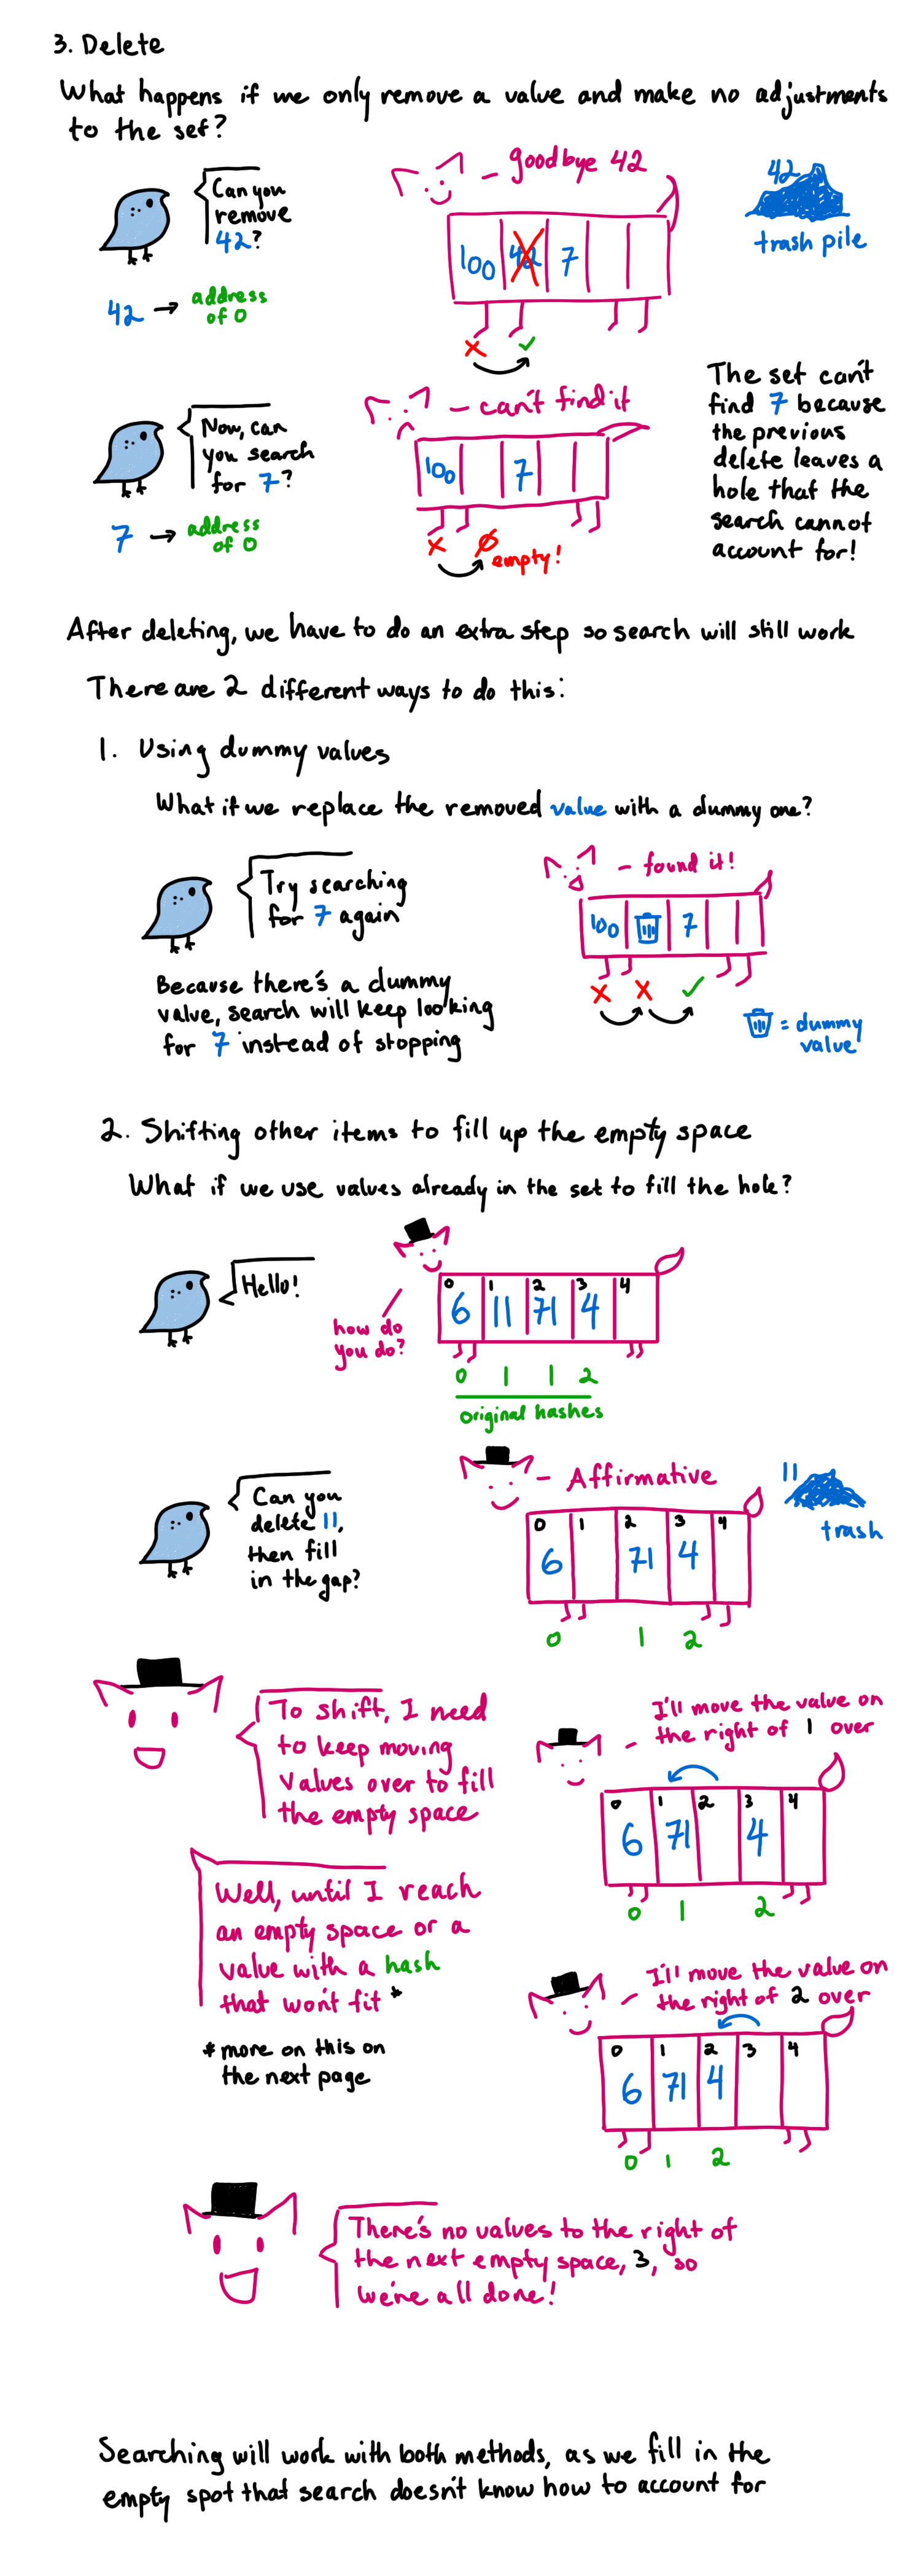 3. Delete
What happens if we only remove a value and make no adjustments
to the set?
Can you
remove
42?
42 → address
of 0
- goodbye 42
100 42 7
42
trash pile
Now, can
you search
for 7?
7 → address
of 0
- can't find it
100 7
empty!
The set can't
find 7 because
the previous
delete leaves a
hole that the
search cannot
account for!
After deleting, we have to do an extra step so search will still work
There are 2 different ways to do this:
1. Using dummy values
What if we replace the removed value with a dummy one?
Try searching
for 7 again
Because there's a dummy
value, search will keep looking
for 7 instead of stopping
- found it!
100 7
= dummy
value
2. Shifting other items to fill up the empty space
What if we use values already in the set to fill the hole?
Hello!
how do
you do?
0 1 2 3 4
6 11 71 4
0 1 1 2
original hashes
Can you
delete 11,
then fill
in the gap?
- Affirmative
0 1 2 3 4
6 71 4
0 1 2
11
trash
To shift, I need
to keep moving
values over to fill
the empty space
Well, until I reach
an empty space or a
value with a hash
that won't fit *
* more on this on
the next page
- I'll move the value on
the right of 1 over
0 1 2 3 4
6 71 4
0 1 2
- I'll move the value on
the right of 2 over
0 1 2 3 4
6 71 4
0 1 2
There's no values to the right of
the next empty space, 3, so
we're all done!
Searching will work with both methods, as we fill in the
empty spot that search doesn't know how to account for